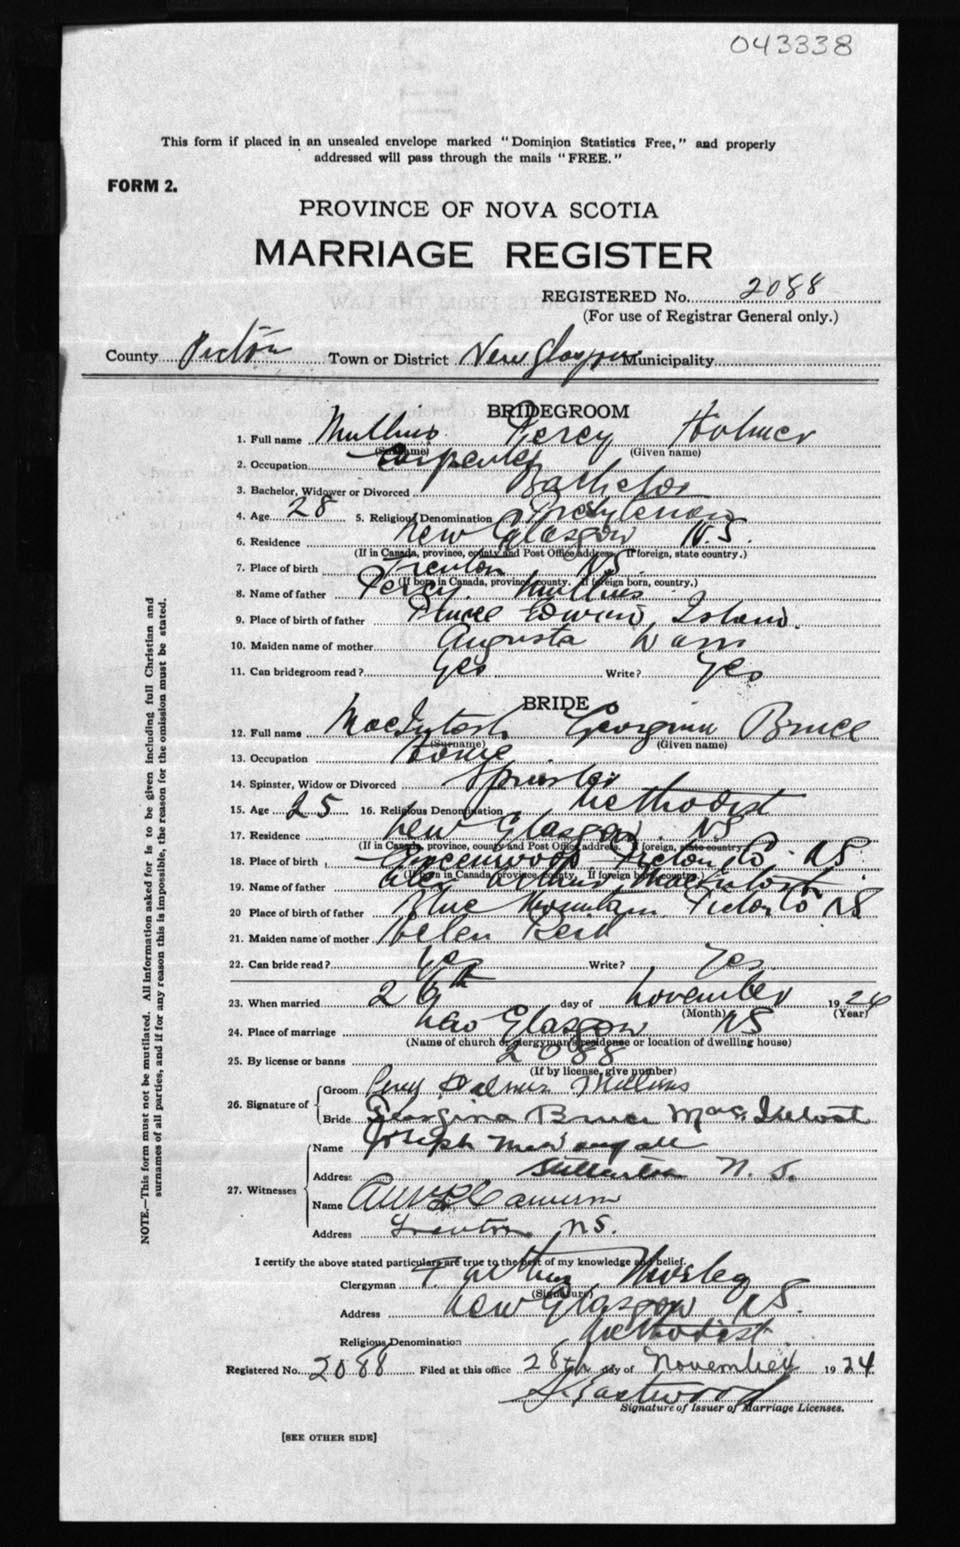 043338
This form if placed in an unsealed envelope marked "Dominion Statistics Free," and properly
addressed will pass through the mails "FREE."
FORM 2.
PROVINCE OF NOVA SCOTIA
MARRIAGE REGISTER
REGISTERED No. 2088
(For use of Registrar General only.)
County Pictou Town or District New Glasgow Municipality
BRIDEGROOM
1. Full name Mullins Percy Holmer
(Surname) (Given name)
2. Occupation Carpenter
3. Bachelor, Widower or Divorced Bachelor
4. Age 28 5. Religious Denomination Presbyterian
6. Residence New Glasgow N.S.
(If in Canada, province, county and Post Office address. If foreign, state country.)
7. Place of birth Trenton NS
(If born in Canada, province, county. If foreign born, country.)
8. Name of father Percy Mullins
9. Place of birth of father Prince Edward Island.
10. Maiden name of mother Augusta
11. Can bridegroom read? Yes Write? Yes
BRIDE
12. Full name MacIntosh Georgina Bruce
(Surname) (Given name)
13. Occupation Home
14. Spinster, Widow or Divorced Spinster
15. Age 25 16. Religious Denomination Methodist
17. Residence New Glasgow NS
(If in Canada, province, county and Post Office address. If foreign, state country)
18. Place of birth Greenwood Pictou Co. NS
(If born in Canada, province, county. If foreign born, country)
19. Name of father Alex Arthur MacIntosh
20 Place of birth of father Blue Mountain Pictou Co NS
21. Maiden name of mother Helen Reid
22. Can bride read? Yes Write? Yes
23. When married 26th day of November 1924
(Month) (Year)
24. Place of marriage New Glasgow NS
(Name of church or clergyman's residence or location of dwelling house)
25. By license or banns 2088
(If by license, give number)
26. Signature of Groom Percy Holmer Mullins
Bride Georgina Bruce MacIntosh
27. Witnesses Name Joseph MacDougall
Address Stellarton N.S.
Name Cameron
Address Trenton NS.
I certify the above stated particulars are true to the best of my knowledge and belief.
Clergyman T Arthur Mosley
(Signature)
Address New Glasgow NS.
Religious Denomination Methodist
Registered No. 2088 Filed at this office 28th day of November 1924
S. Eastwood
Signature of Issuer of Marriage Licenses.
[SEE OTHER SIDE]
NOTE.—This form must not be mutilated. All information asked for is to be given including full Christian and
surnames of all parties, and if for any reason this is impossible, the reason for the omission must be stated.